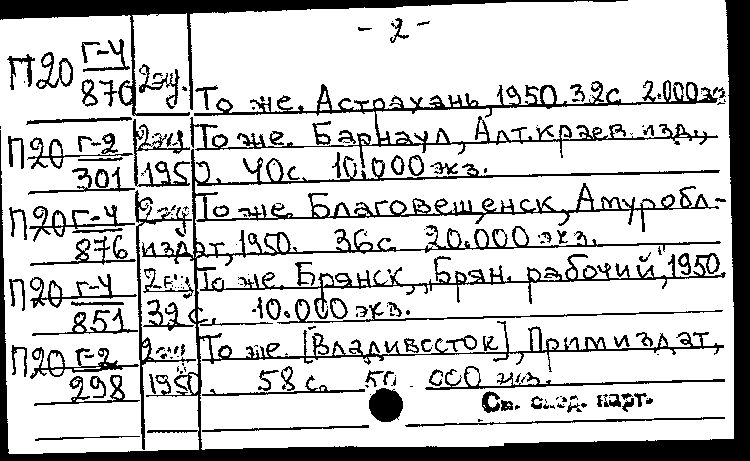 - 2 -
П20 Г-4/870 2эк. То же. Астрахань, 1950. 32с. 2.000экз
П20 Г-2/301 2эк То же. Барнаул, Алт.краев. изд.,
1950. 40с. 10.000 экз.
П20 Г-4/876 2эк То же. Благовещенск, Амуробл-
издат, 1950. 36с. 20.000 экз.
П20 Г-4/851 2эк То же. Брянск, „Брян. рабочий", 1950.
32с. 10.000 экз.
П20 Г-2/298 2эк То же. [Владивосток], Примиздат,
1950. 58с. 50.000 экз.
См. след. карт.